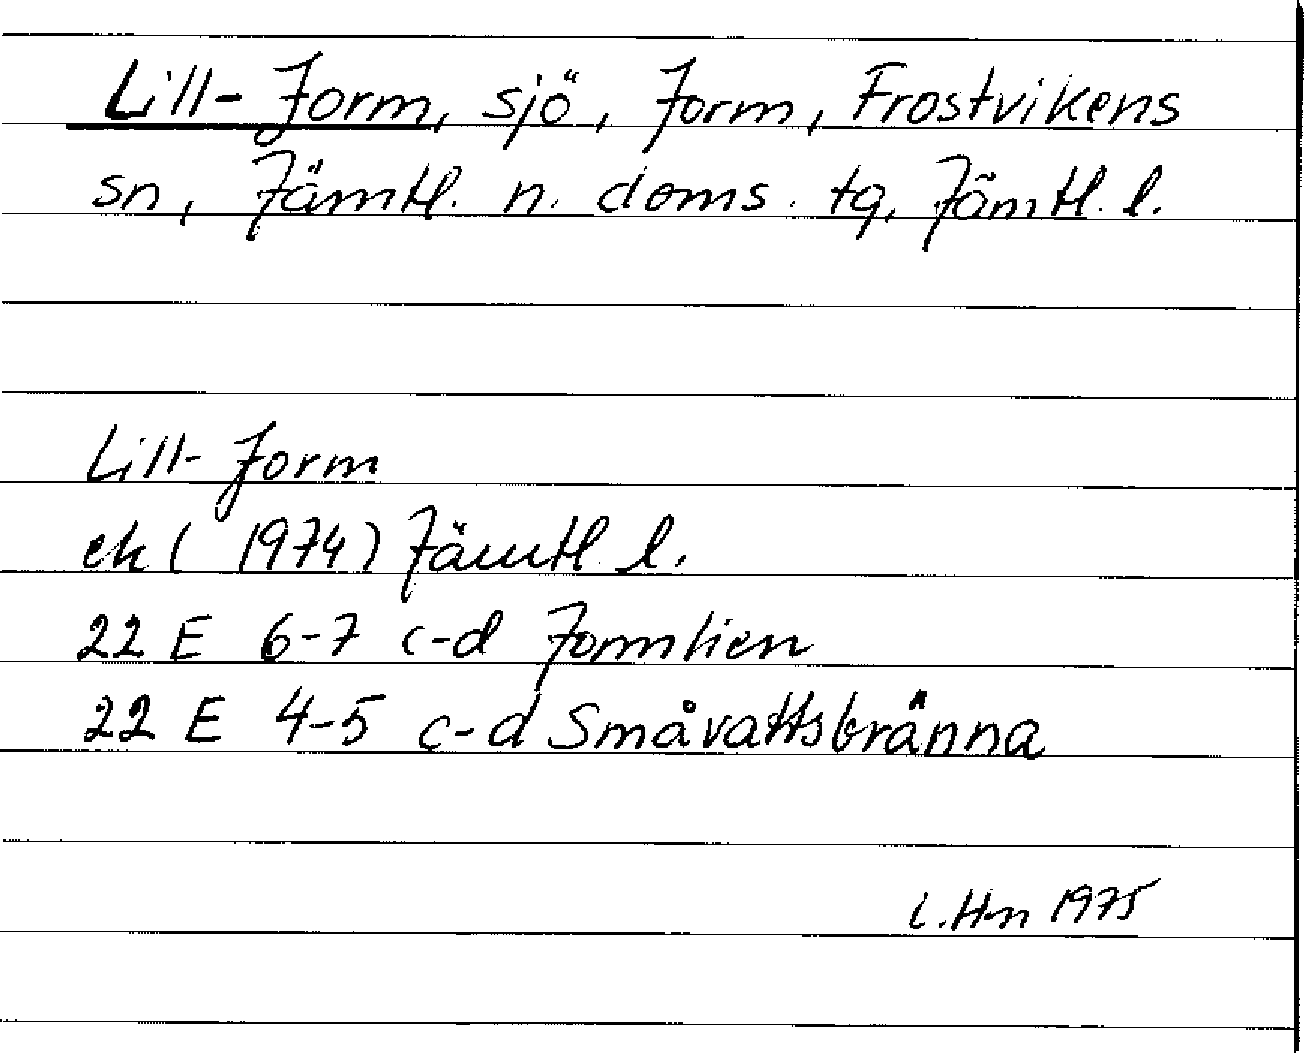 Lill-Jorm, sjö, Jorm, Frostvikens
sn, Jämtl. n. doms. tg, Jämtl. l.
Lill-Jorm
ek (1974) Jämtl. l.
22 E 6-7 c-d Jormlien
22 E 4-5 c-d Småvattsbränna
L.Hm 1975